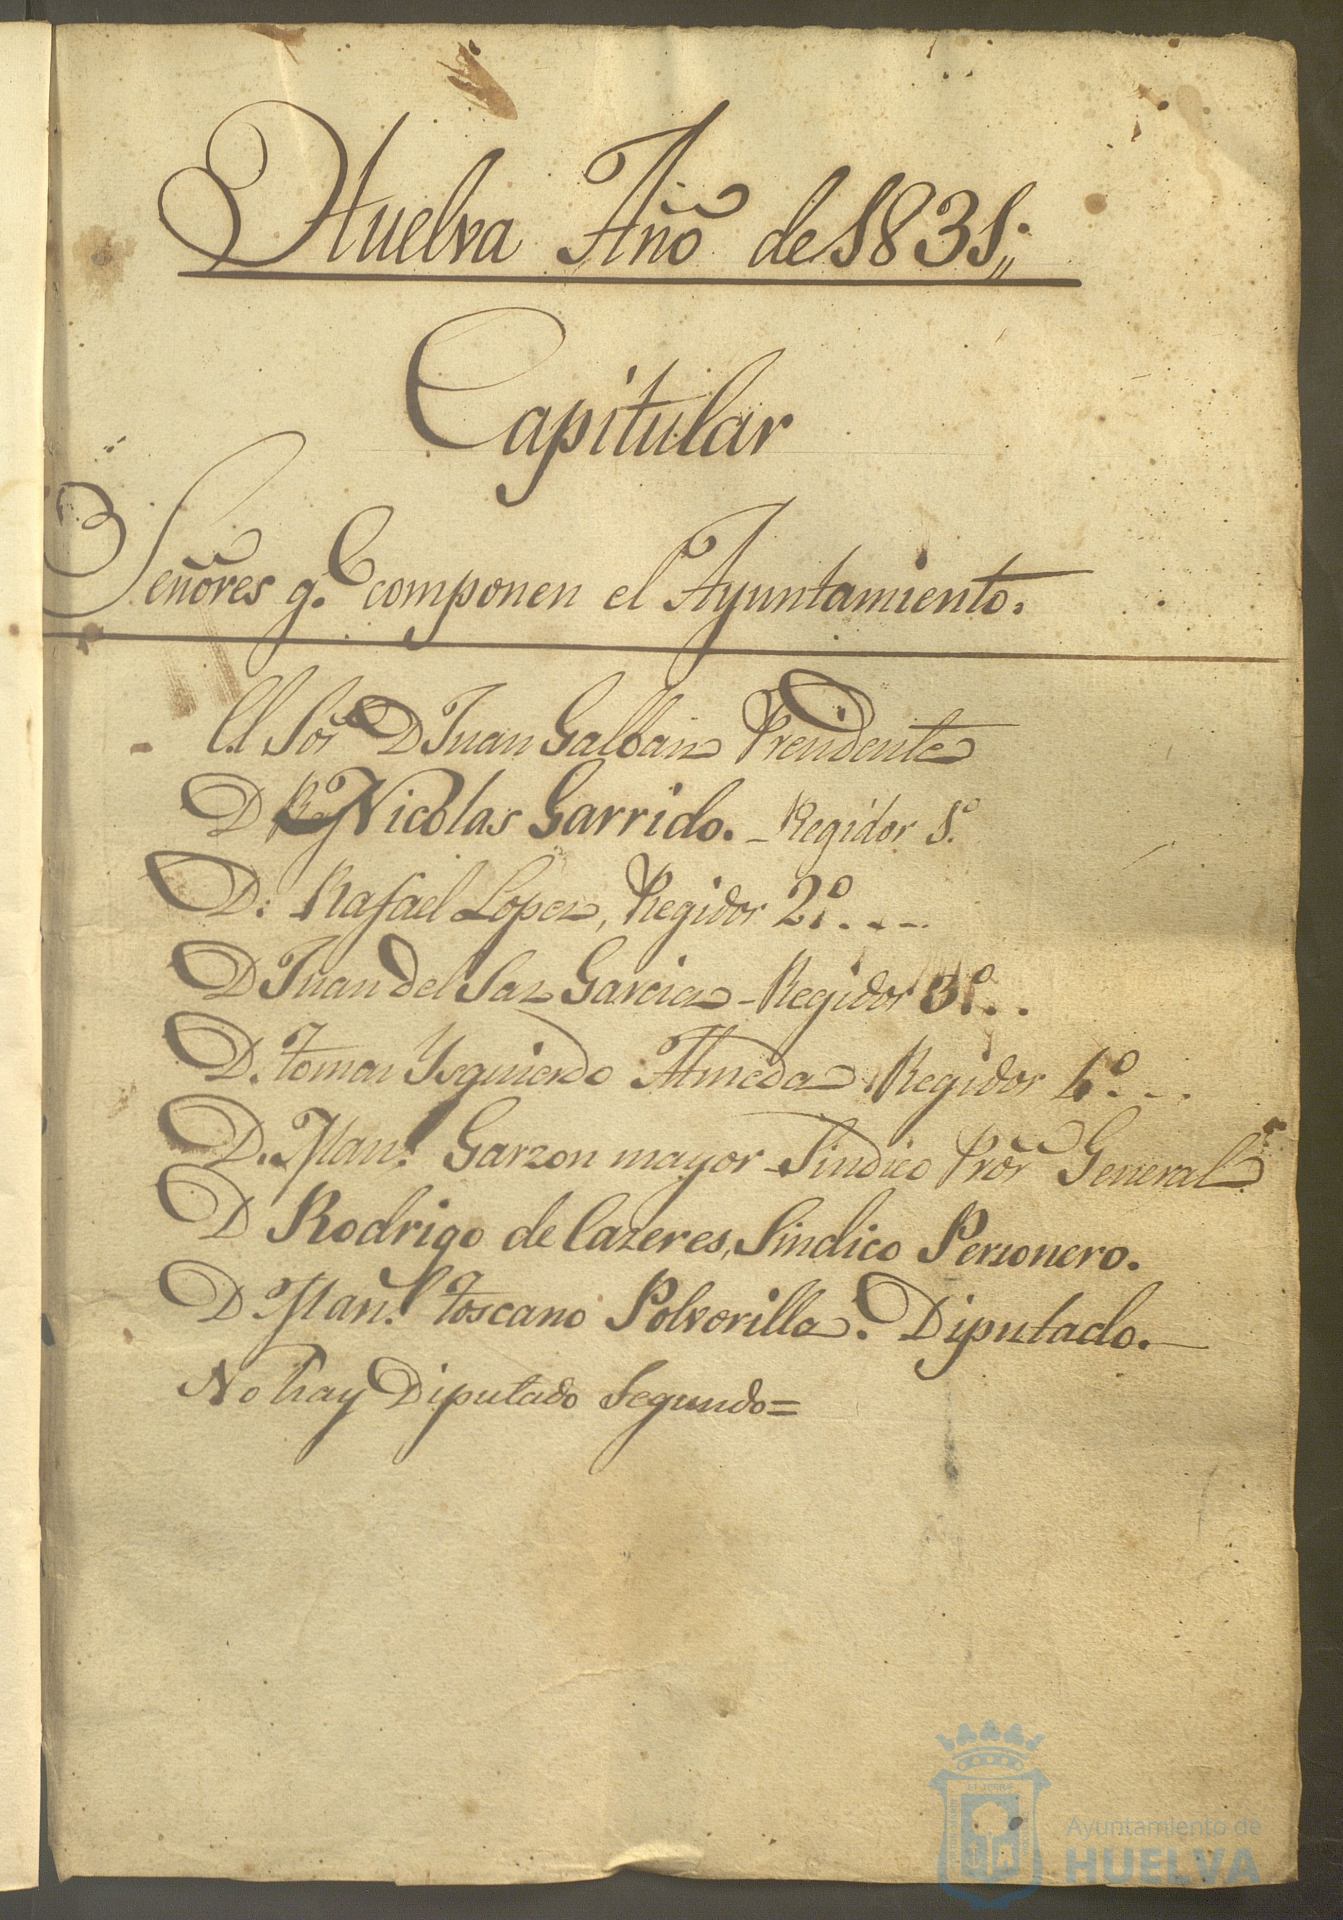 Huelva Año de 1831;
Capitular
Señores q.e componen el Ayuntamiento.
El Sor. D Juan Galban Presidente
D Nicolas Garrido. - Regidor 1.o
D. Rafael Lopez, Regidor 2.o
D Juan del Saz Garcia - Regidor 3.o
D. tomas Ysquierdo Almeda Regidor 4.o
D. Man.l Garzon mayor - Sindico Pror General
D Rodrigo de Cazeres, Sindico Personero.
D Man.l toscano Polvorilla. Diputado.
No hay Diputado Segundo=
Ayuntamiento de
HUELVA